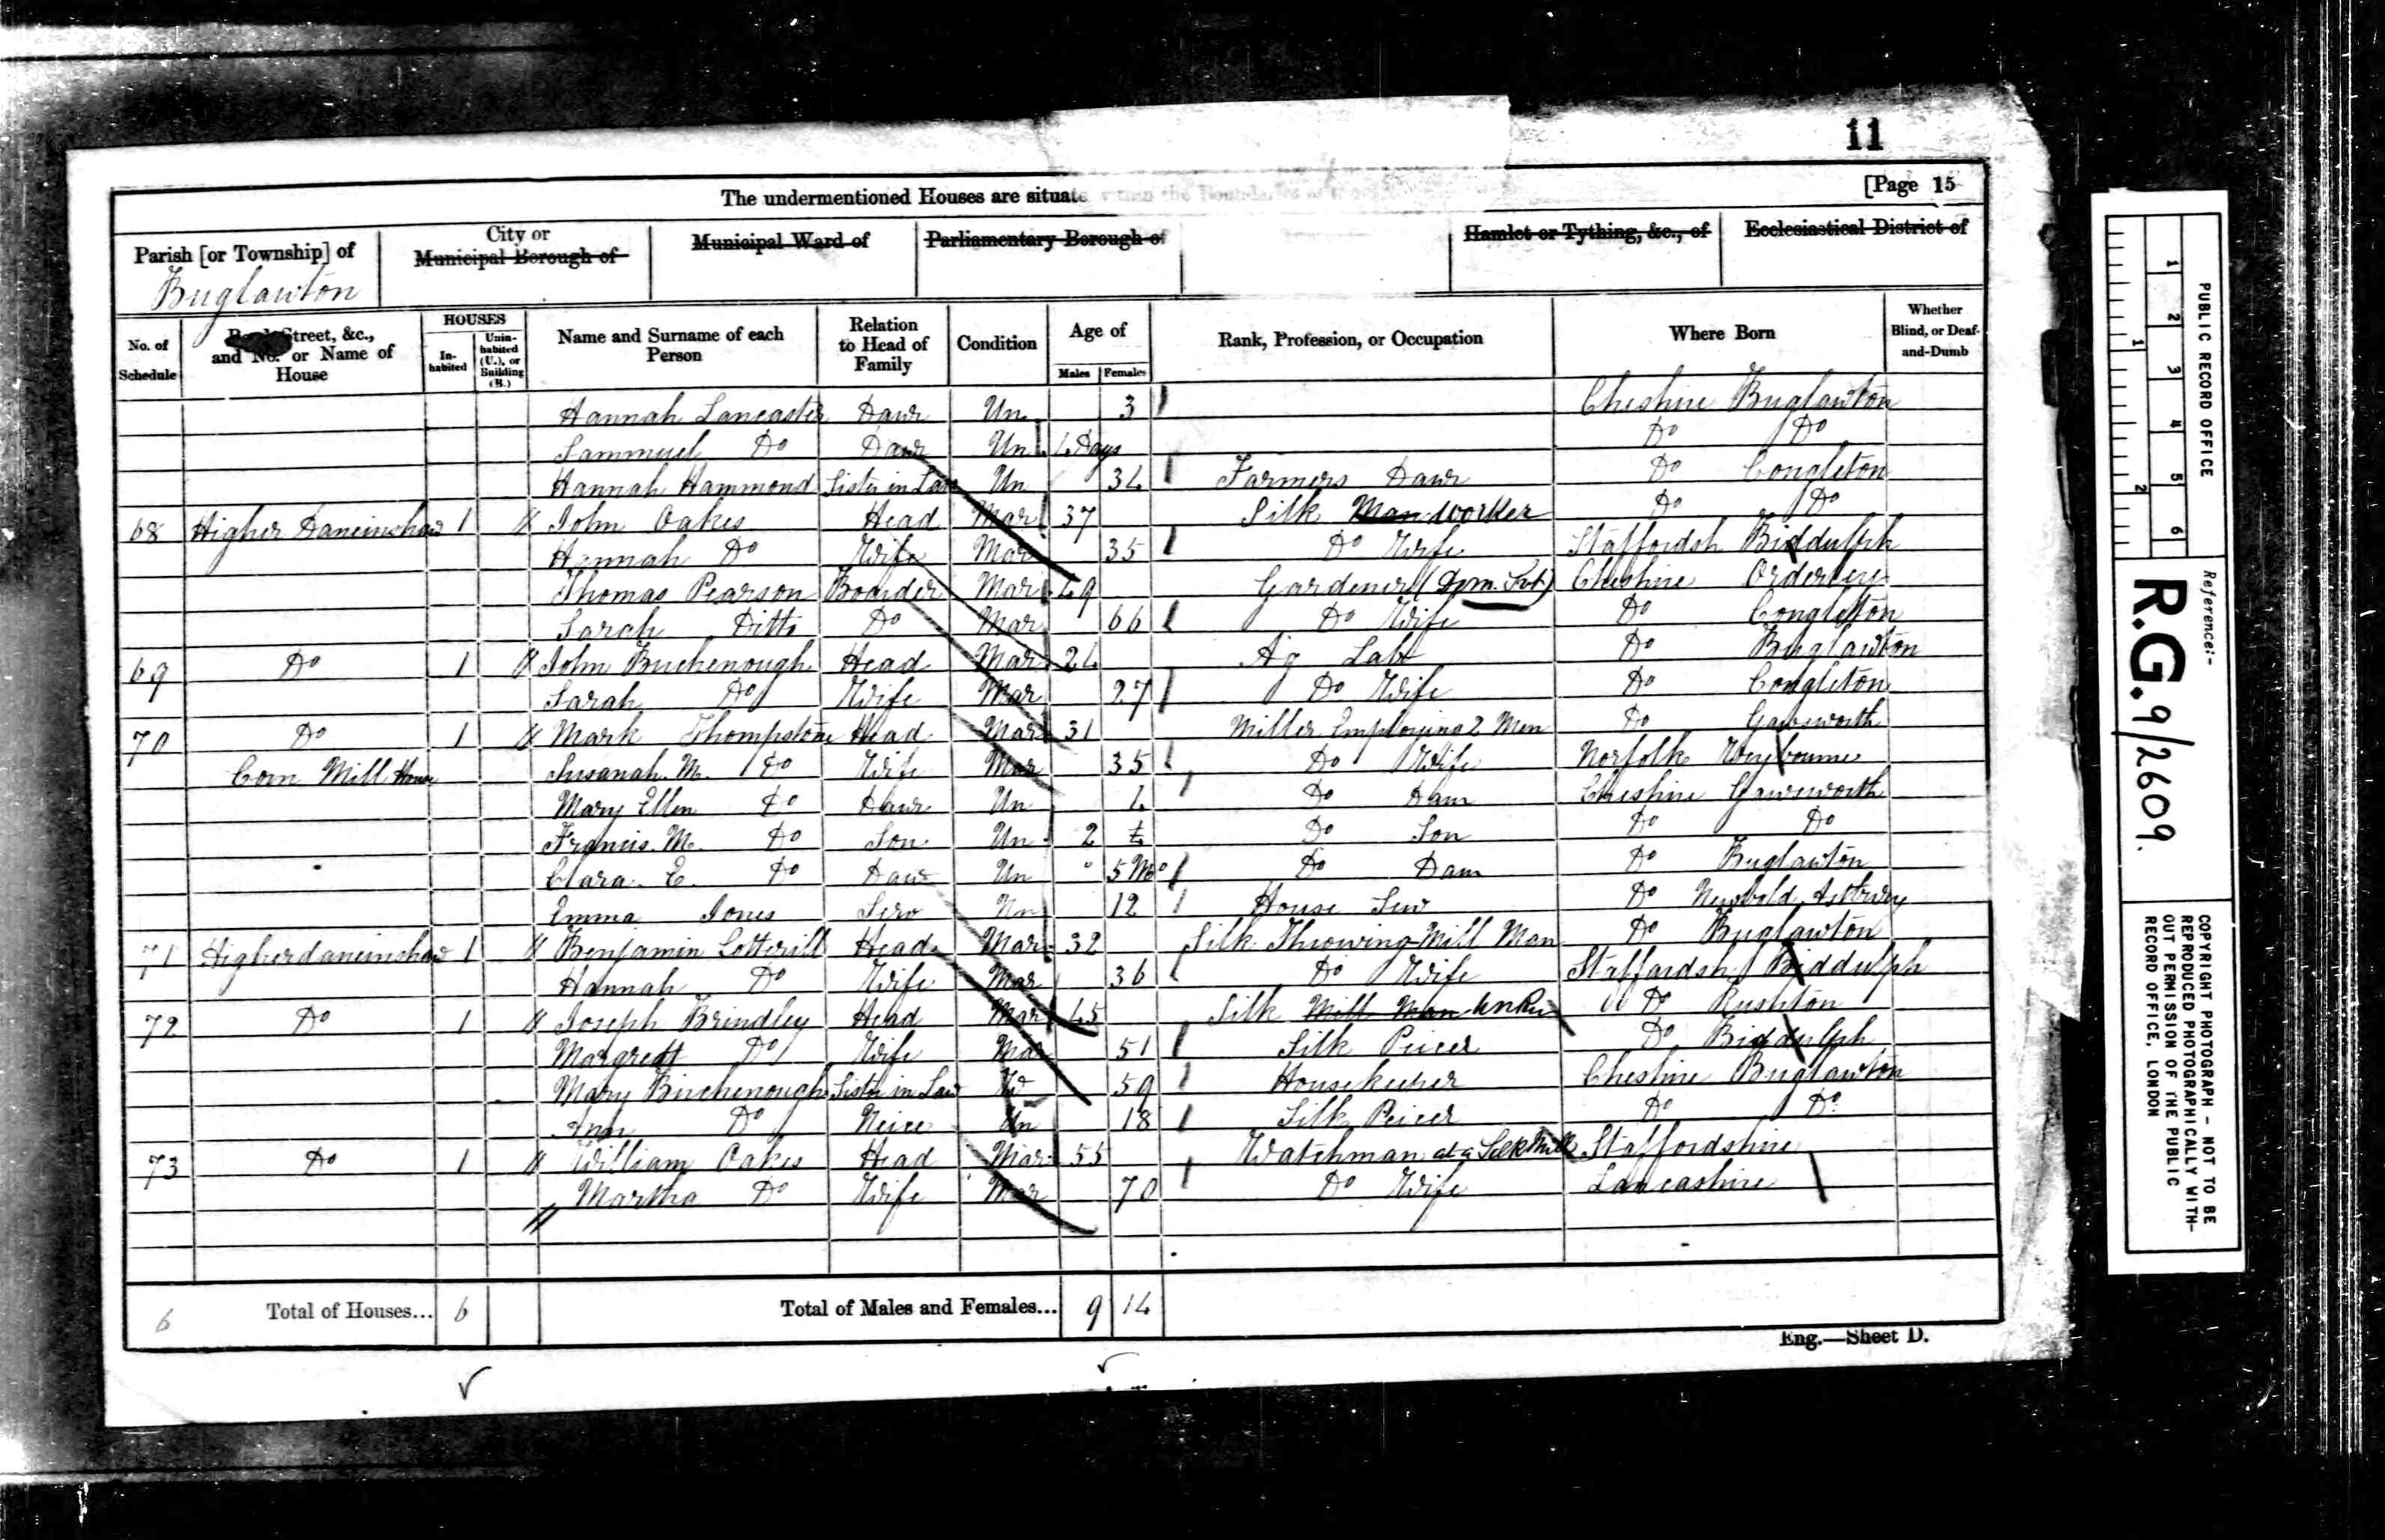 11
The undermentioned Houses are situate
[Page 15
Parish [or Township] of
Buglawton
City or
Municipal Borough of
Municipal Ward of
Parliamentary Borough of
Hamlet or Tything, &c., of
Ecclesiastical District of
No. of Schedule
Street, &c., and No. or Name of House
HOUSES
Inhabited
Uninhabited (U.), or Building (B.)
Name and Surname of each Person
Relation to Head of Family
Condition
Age of
Males
Females
Rank, Profession, or Occupation
Where Born
Whether Blind, or Deaf-and-Dumb
Hannah Lancaster Daur Un 3 Cheshire Buglawton
Sammuel Do Daur Un 4 Days Do Do
Hannah Hammond Sister in Law Un 34 Farmers Daur Do Congleton
68 Higher Daneinshaw 1 John Oakes Head Mar 37 Silk Man worker Do Do
Hannah Do Wife Mar 35 Do Wife Staffordsh Biddulph
Thomas Pearson Boarder Mar 49 Gardener (Dom. Svt) Cheshire
Sarah Ditto Do Mar 66 Do Wife Do Congleton
69 Do 1 John Buchenough Head Mar 24 Ag Lab Do Buglawton
Sarah Do Wife Mar 27 Do Wife Do Congleton
70 Do 1 Mark Thompstone Head Mar 31 Miller Employing 2 Men Do Gawsworth
Corn Mill House Susanah M. Do Wife Mar 35 Do Wife Norfolk Weybourne
Mary Ellen Do Daur Un 4 Do Daur Cheshire Gawsworth
Francis M. Do Son Un 2 Do Son Do Do
Clara E. Do Daur Un 5 Mo Do Daur Do Buglawton
Emma Jones Serv Un 12 House Serv Do Newbold Astbury
71 Higherdaneinshaw 1 Benjamin Cotterill Head Mar 32 Silk Throwing Mill Man Do Buglawton
Hannah Do Wife Mar 36 Do Wife Staffordsh Biddulph
72 Do 1 Joseph Brindley Head Mar 45 Silk Mill Man Do Rushton
Margrett Do Wife Mar 51 Silk Peicer Do Biddulph
Mary Birchenough Sister in Law W 59 Housekeeper Cheshire Buglawton
Ann Do Neice Un 18 Silk Peicer Do Do
73 Do 1 William Oakes Head Mar 55 Watchman at a Silk Mill Staffordshire
Martha Do Wife Mar 70 Do Wife Lancashire
6 Total of Houses... 6 Total of Males and Females... 9 14
Eng.—Sheet D.
PUBLIC RECORD OFFICE
1 2 3 4 5 6
1 2
Reference:-
R.G. 9/2609.
COPYRIGHT PHOTOGRAPH - NOT TO BE
REPRODUCED PHOTOGRAPHICALLY WITH-
OUT PERMISSION OF THE PUBLIC
RECORD OFFICE, LONDON